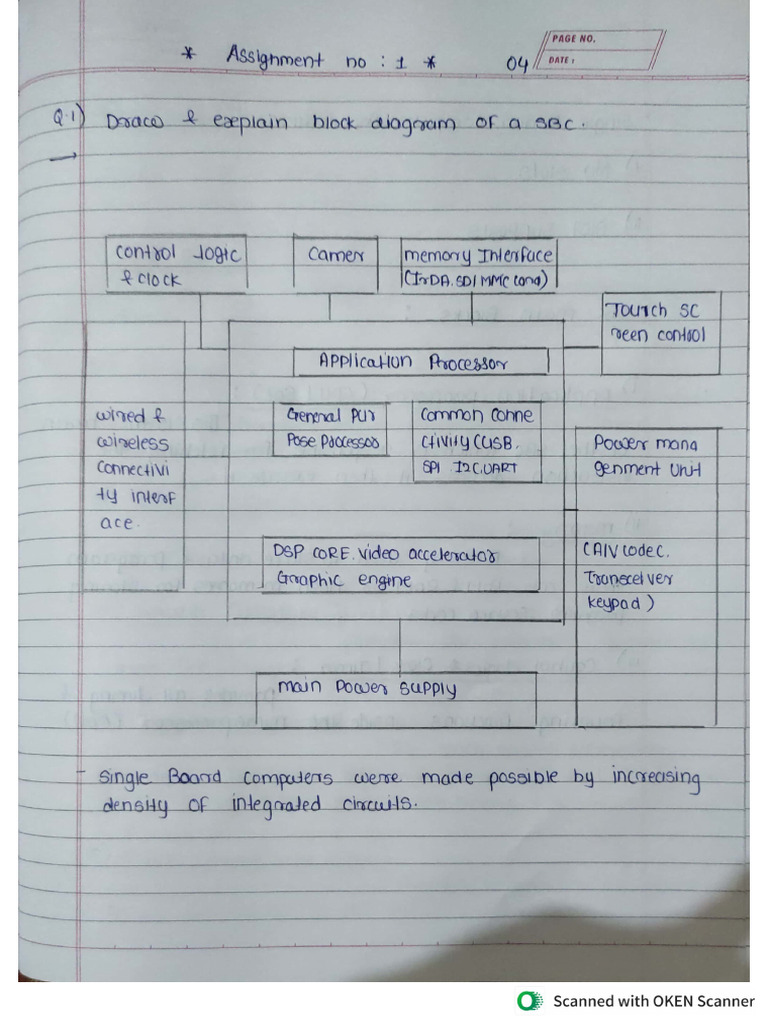 * Assignment no : 1 *
04
PAGE NO.
DATE :
Q.1) Draw & explain block diagram of a SBC.
control logic
& clock
Camer
memory Interface
(IrDA.SD/MMC Cond)
Tourch SC
reen control
Application Processor
wired &
wireless
Connectivi
ty interf
ace.
General Pur
Pose Processos
Common Conne
ctivity CUSB.
SPI I2C.UART
Power mana
genment Unit
DSP CORE.video accelerator
Graphic engine
(AIV codec.
Transceiver
keypad)
main Power supply
- Single Board computers were made possible by increasing
density of integrated circuits.
Scanned with OKEN Scanner